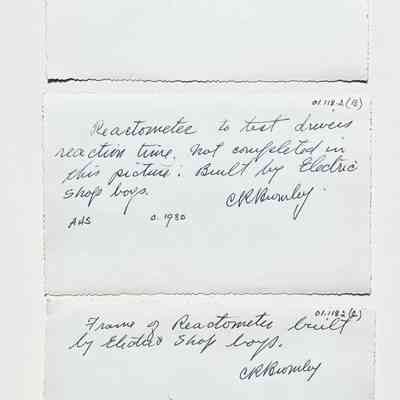 01.118.2 (B)
Reactometer to test drivers
reaction time. Not completed in
this picture. Built by Electric
Shop boys.
CRBromley.
AHS c. 1930
01.118.2 (A)
Frame of Reactometer built
by Electric Shop boys.
CRBromley